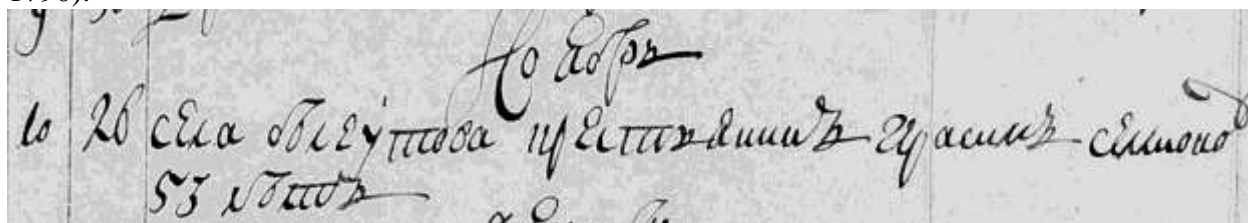 1790).
Ноябрь
10 26 села облеутова крестьянинъ герасимъ семионо
53 летъ